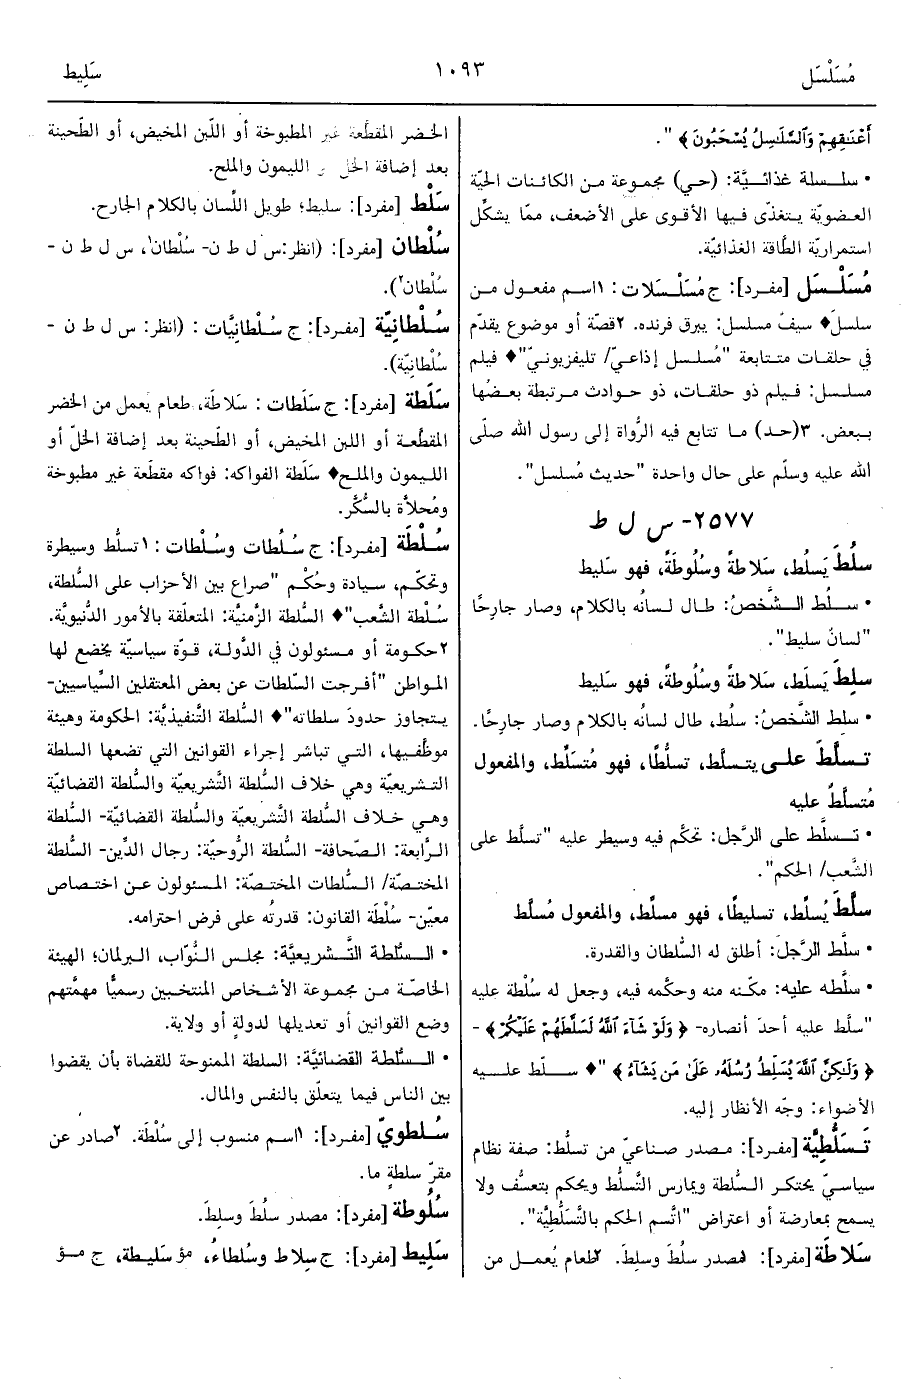 مُسَلْسَل
١٠٩٣
سَلِيط
أَعْنَاقِهِمْ وَالسَّلَاسِلُ يُسْحَبُونَ﴾ ".
• سلسلة غذائيَّة: (حي) مجموعة من الكائنات الحيّة
العضويّة يتغذّى فيها الأقوى على الأضعف، ممّا يشكِّل
استمراريّة الطَّاقة الغذائيّة.
مُسَلْسَل [مفرد]: ج مُسَلْسَلات: ١اسم مفعول من
سلسلَ♦ سيفٌ مسلسل: يبرق فرنده. ٢قصّة أو موضوع يقدّم
في حلقات متتابعة "مُسلسل إذاعيّ/ تليفزيونيّ"♦ فيلم
مسلسل: فيلم ذو حلقات، ذو حوادث مرتبطة بعضُها
ببعض. ٣(حد) ما تتابع فيه الرُّواة إلى رسول الله صلّى
الله عليه وسلّم على حال واحدة "حديث مُسلسل".
٢٥٧٧- س ل ط
سلُطَ يَسلُط، سَلاطةً وسُلُوطَةً، فهو سَليط
• سلُط الشَّخصُ: طال لسانُه بالكلام، وصار جارِحًا
"لسانٌ سليط".
سلِطَ يَسلَط، سَلاطةً وسُلُوطةً، فهو سَليط
• سلِط الشَّخصُ: سلُط، طال لسانُه بالكلام وصار جارحًا.
تسلَّطَ على يتسلَّط، تسلُّطًا، فهو مُتسَلِّط، والمفعول
مُتسلَّطٌ عليه
• تسلَّط على الرَّجل: تحكَّم فيه وسيطر عليه "تسلَّط على
الشَّعب/ الحكم".
سلَّطَ يُسلِّط، تسليطًا، فهو مسلِّط، والمفعول مُسلَّط
• سلَّط الرَّجلَ: أطلق له السُّلطان والقدرة.
• سلَّطه عليه: مكّنه منه وحكّمه فيه، وجعل له سُلْطة عليه
"سلَّط عليه أحدَ أنصاره- ﴿وَلَوْ شَاءَ اللَّهُ لَسَلَّطَهُمْ عَلَيْكُمْ﴾-
﴿وَلَكِنَّ اللَّهَ يُسَلِّطُ رُسُلَهُ عَلَى مَن يَشَاءُ﴾ "♦ سلّط عليه
الأضواء: وجّه الأنظار إليه.
تَسَلُّطِيَّة [مفرد]: مصدر صناعيّ من تسلُّط: صفة نظام
سياسيّ يحتكر السُّلطة ويمارس التَّسلُّط ويحكم بتعسُّف ولا
يسمح بمعارضة أو اعتراض "اتَّسم الحكم بالتَّسَلُّطِيَّة".
سَلاطَة [مفرد]: ١مصدر سلُطَ وسلِطَ. ٢طعام يُعمل من
الخضر المقطّعة غير المطبوخة أو اللّبن المخيض، أو الطّحينة
بعد إضافة الخلّ و الليمون والملح.
سَلْط [مفرد]: سليط؛ طويل اللِّسان بالكلام الجارح.
سُلْطان [مفرد]: (انظر:س ل ط ن- سُلْطان١، س ل ط ن -
سُلْطان٢).
سُلْطانِيَّة [مفرد]: ج سُلْطانِيَّات: (انظر: س ل ط ن -
سُلْطانِيّة).
سَلَطَة [مفرد]: ج سَلَطات: سَلاطَة، طعام يعمل من الخضر
المقطّعة أو اللبن المخيض، أو الطّحينة بعد إضافة الخلّ أو
الليمون والملح♦ سَلَطة الفواكه: فواكه مقطّعة غير مطبوخة
ومُحلاّة بالسُّكّر.
سُلْطَة [مفرد]: ج سُلُطات وسُلْطات: ١تسلُّط وسيطرة
وتحكّم، سيادة وحُكْم "صراع بين الأحزاب على السُّلطة،
سُلْطة الشَّعب"♦ السُّلطة الزَّمنيّة: المتعلّقة بالأمور الدُّنيويَّة.
٢حكومة أو مسئولون في الدَّولة، قوّة سياسيّة يخضع لها
المواطن "أفرجت السّلطات عن بعض المعتقلين السِّياسيين-
يتجاوز حدودَ سلطاته"♦ السُّلطة التَّنفيذيَّة: الحكومة وهيئة
موظّفيها، التي تباشر إجراء القوانين التي تضعها السلطة
التشريعيّة وهي خلاف السُّلطة التَّشريعيّة والسُّلطة القضائيّة
وهي خلاف السُّلطة التَّشريعيّة والسُّلطة القضائيّة- السُّلطة
الرَّابعة: الصّحافة- السُّلطة الرُّوحيّة: رجال الدِّين- السُّلطة
المختصّة/ السُّلطات المختصّة: المسئولون عن اختصاص
معيّن- سُلْطَة القانون: قدرتُه على فرض احترامه.
• السُّلطة التَّشريعيَّة: مجلس النُّوّاب، البرلمان؛ الهيئة
الخاصّة من مجموعة الأشخاص المنتخبين رسميًّا مهمَّتهم
وضع القوانين أو تعديلها لدولةٍ أو ولاية.
• السُّلطة القضائيَّة: السلطة الممنوحة للقضاة بأن يقضوا
بين الناس فيما يتعلّق بالنفس والمال.
سُلطويّ [مفرد]: ١اسم منسوب إلى سُلْطَة. ٢صادر عن
مقرّ سلطةٍ ما.
سُلُوطَة [مفرد]: مصدر سلُطَ وسلِطَ.
سَلِيط [مفرد]: ج سِلاط وسُلطاءُ، مؤ سَليطة، ج مؤ